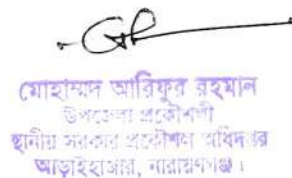 মোহাম্মদ আরিফুর রহমান
উপজেলা প্রকৌশলী
স্থানীয় সরকার প্রকৌশল অধিদপ্তর
আড়াইহাজার, নারায়ণগঞ্জ।